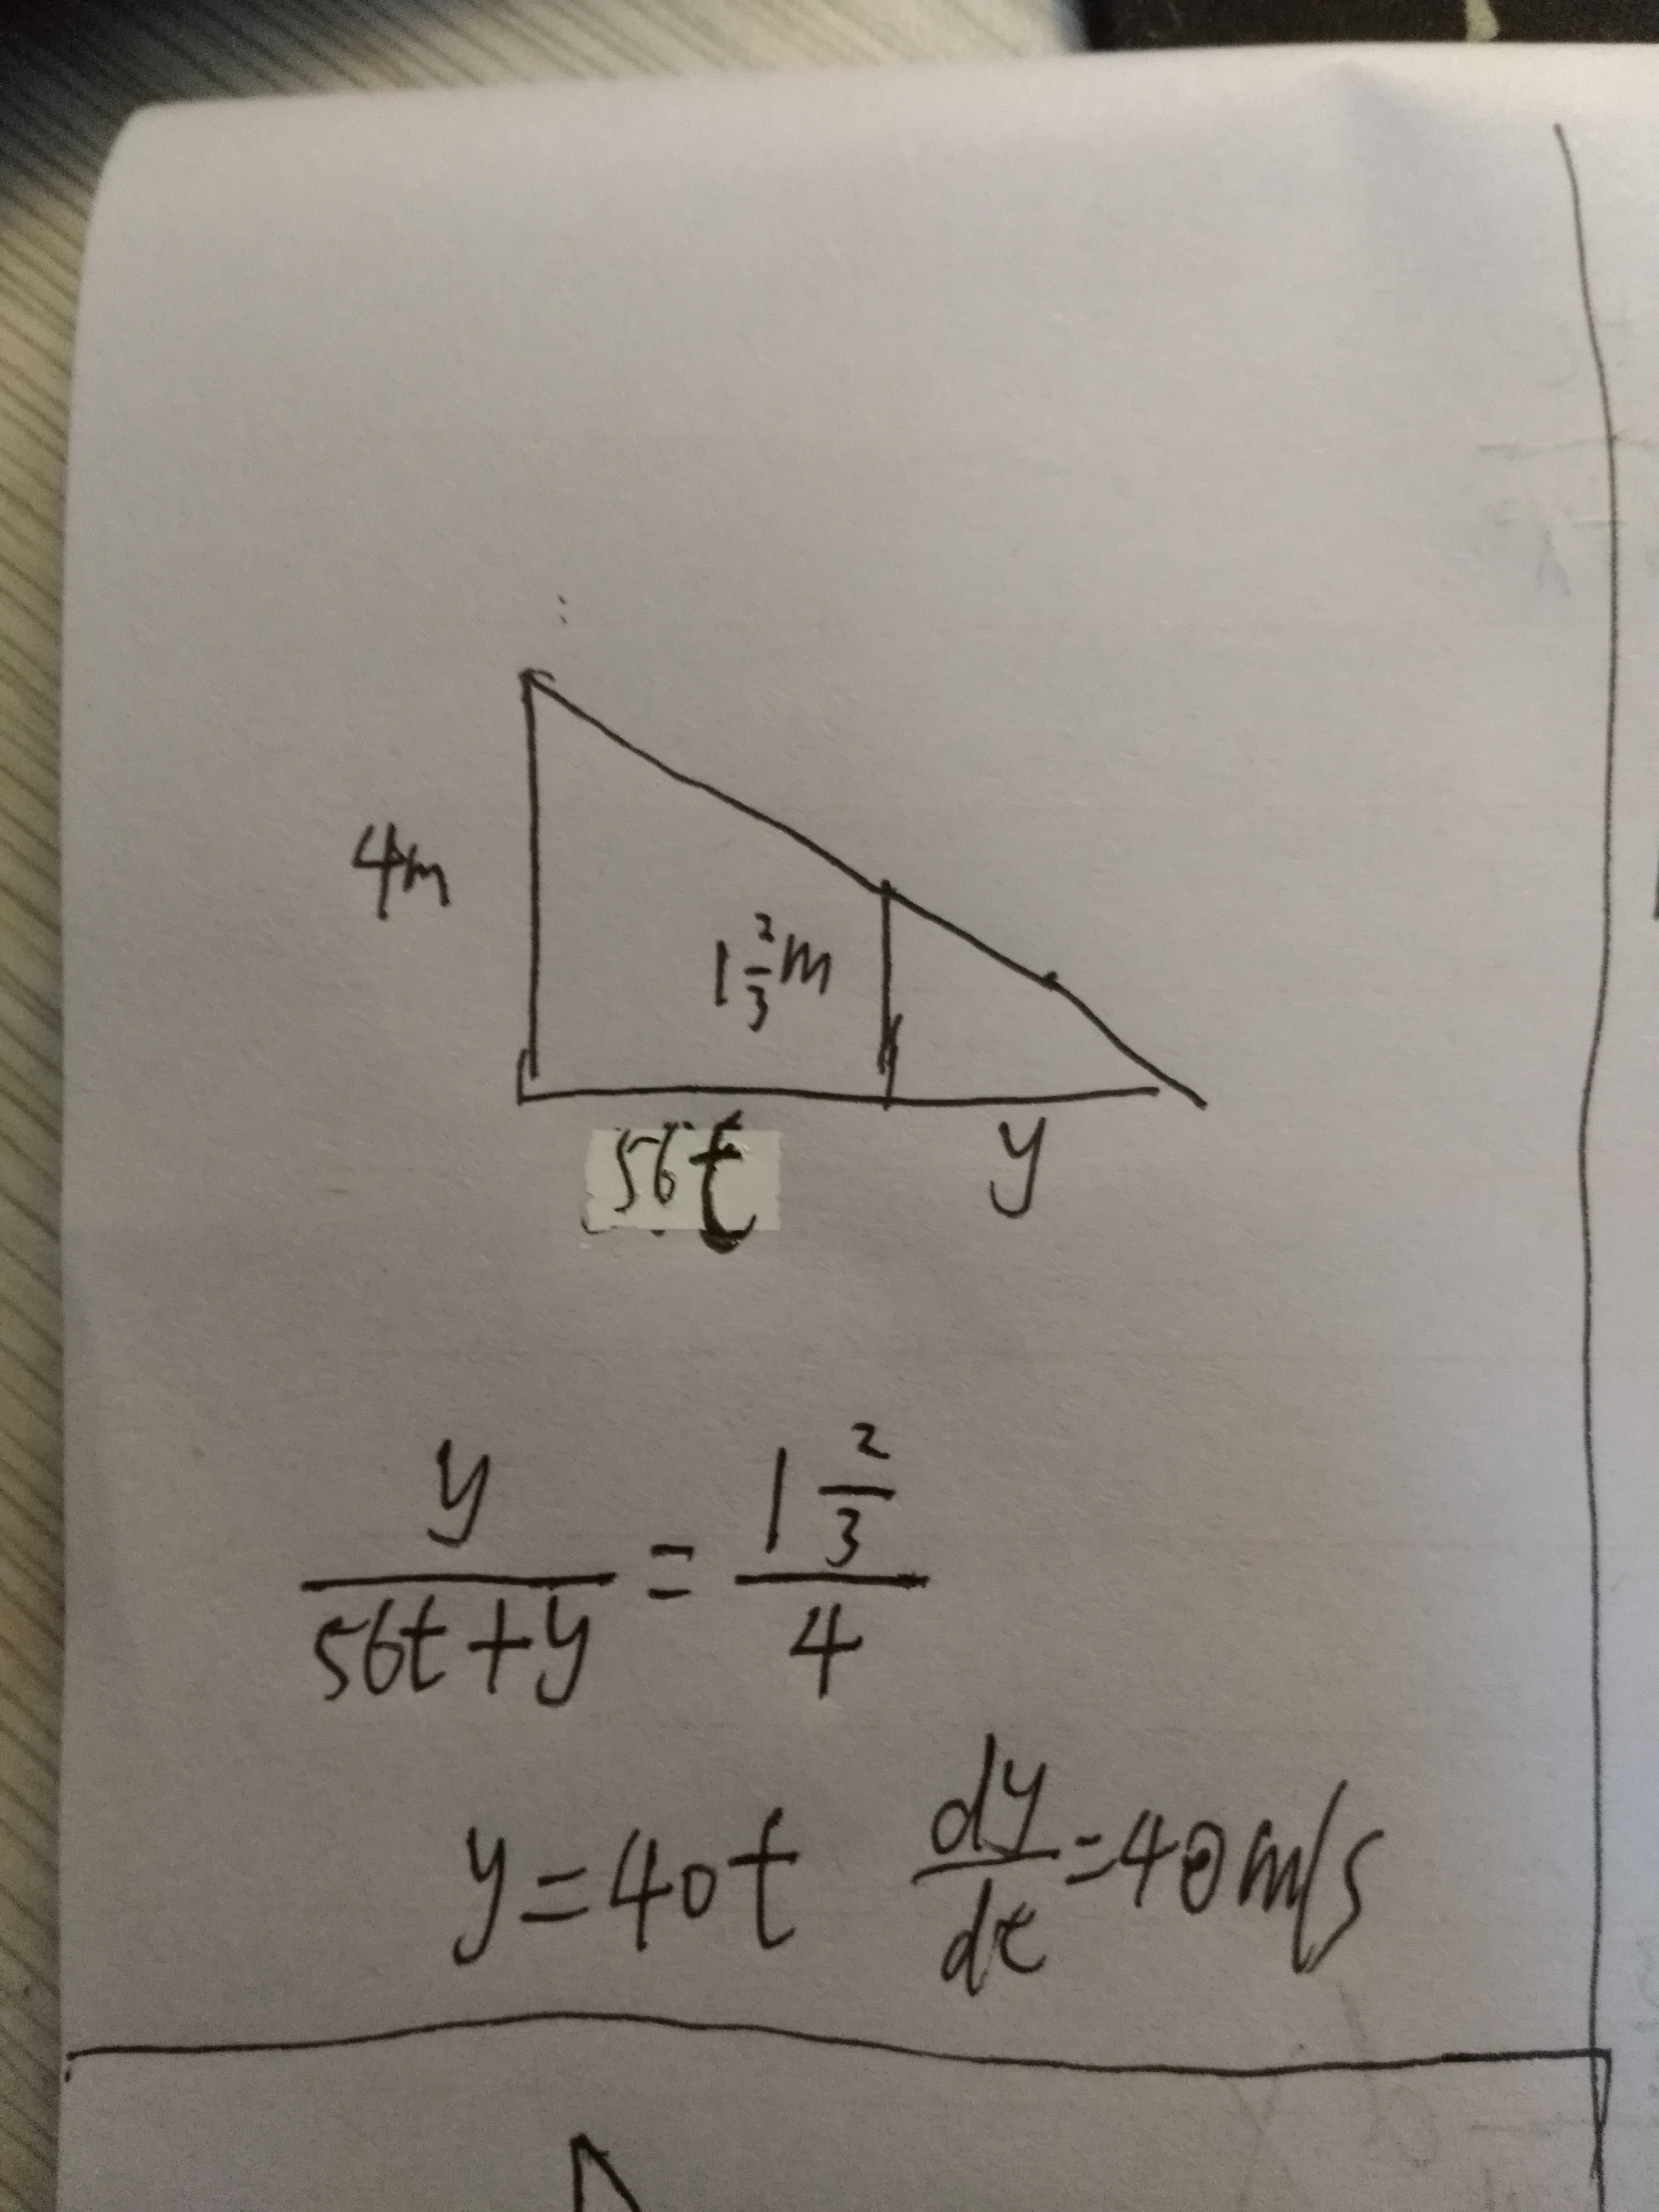 4m
1 2/3 m
56t y
y/(56t+y) = 1 2/3 / 4
y=40t dy/dt=40m/s